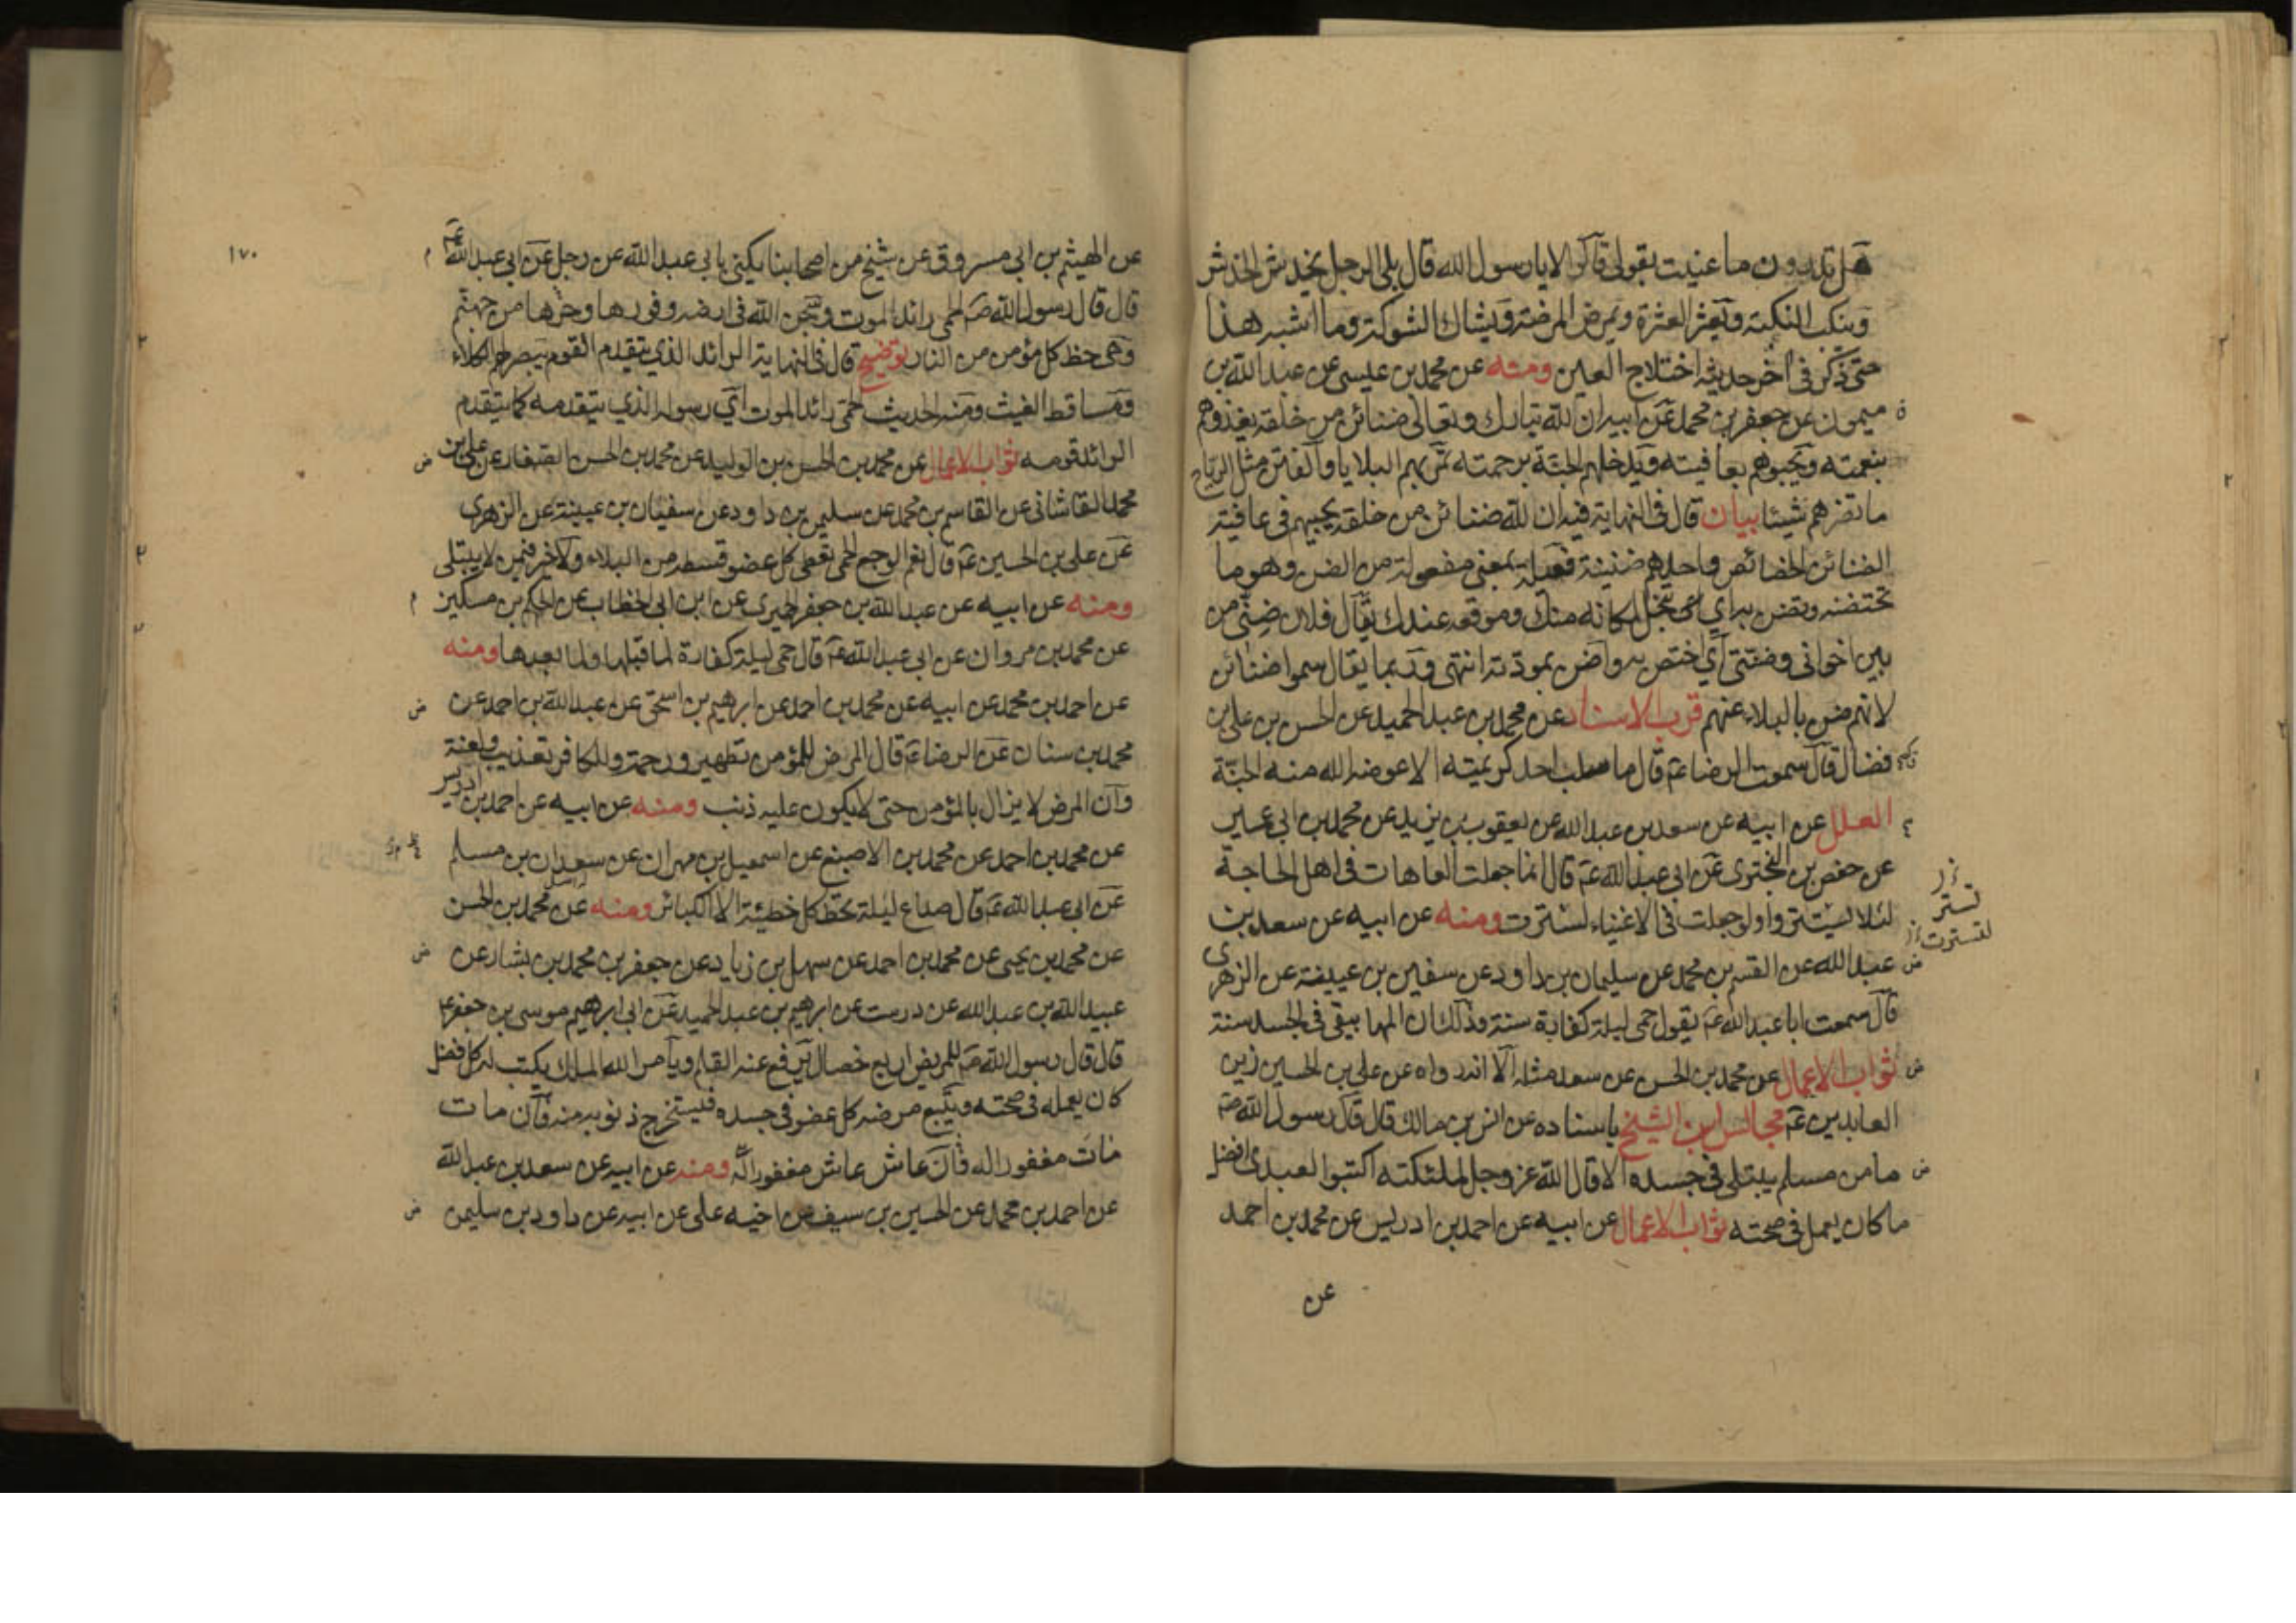 هل تدرون ما عنيت بقولي قالوا لا يا رسول الله قال بلى الرجل يخدش الخدش
وينكب النكبة ويعثر العثرة ويمرض المرضة ويشاك الشوكة وما اشبه هذا
حتى ذكر في آخر حديثه اختلاج العين ومنه عن محمد بن عيسى عن عبد الله بن
ميمون عن جعفر بن محمد عن ابيه ان لله تبارك وتعالى ضنائن من خلقه يغذوهم
بنعمته ويحبوهم بعافيته ويدخلهم الجنة برحمته تمر بهم البلايا والفتن مثل الرياح
ما تضرهم شيئا بيان قال في النهاية فيه ان لله ضنائن من خلقه يحييهم في عافية
الضنائن الخصائص واحدهم ضنينة فعيلة بمعنى مفعولة من الضن وهو ما
تختصه وتضن به اي تبخل لمكانه منك وموقعه عندك يقال فلان ضني من
بين اخواني وضنتي اي اختص به واضن بمودته انتهى وربما يقال سموا ضنائن
لانهم ضن بالبلاء عنهم قرب الاسناد عن محمد بن عبد الحميد عن الحسن بن علي بن
فضال قال سمعت الرضا ع قال ما سلب احد كريمته الا عوضه الله منه الجنة
العلل عن ابيه عن سعد بن عبد الله عن يعقوب بن يزيد عن محمد بن ابي عمير
عن حفص بن البختري عن ابي عبد الله ع قال انما جعلت العاهات في اهل الحاجة
لئلا يستتروا ولو جعلت في الاغنياء لسترت ومنه عن ابيه عن سعد بن
تستر
لتسترت
عبد الله عن القسم بن محمد عن سليمان بن داود عن سفين بن عيينة عن الزهري
قال سمعت ابا عبد الله ع يقول حمى ليلة كفارة سنة وذلك ان المها يبقى في الجسد سنة
ثواب الاعمال عن محمد بن الحسن عن سعد مثله الا انه رواه عن علي بن الحسين زين
العابدين ع مجالس ابن الشيخ باسناده عن انس بن مالك قال قال رسول الله ص
ما من مسلم يبتلى في جسده الا قال الله عز وجل لملئكته اكتبوا لعبدي افضل
ما كان يعمل في صحته ثواب الاعمال عن ابيه عن احمد بن ادريس عن محمد بن احمد
عن
١٧٠
عن الهيثم بن ابي مسروق عن شيخ من اصحابنا يكنى بابي عبد الله عن رجل عن ابي عبد الله ع
قال قال رسول الله ص الحمى رائد الموت وسجن الله في ارضه وفورها وحرها من جهنم
وهي حظ كل مؤمن من النار توضيح قال في النهاية الرائد الذي يتقدم القوم يبصر لهم الكلاء
ومساقط الغيث ومنه الحديث الحمى رائد الموت اي رسوله الذي يتقدمه كما يتقدم
الرائد قومه ثواب الاعمال عن محمد بن الحسن بن الوليد عن محمد بن الحسن الصفار عن علي بن
محمد القاشاني عن القاسم بن محمد عن سليمن بن داود عن سفيان بن عيينة عن الزهري
عن علي بن الحسين ع قال نعم الوجع الحمى تعطي كل عضو قسطه من البلاء ولا خير فيمن لا يبتلى
ومنه عن ابيه عن عبد الله بن جعفر الحميري عن ابن ابي الخطاب عن الحكم بن مسكين
عن محمد بن مروان عن ابي عبد الله ع قال حمى ليلة كفارة لما قبلها ولما بعدها ومنه
عن احمد بن محمد عن ابيه عن محمد بن احمد عن ابرهيم بن اسحق عن عبد الله بن احمد عن
محمد بن سنان عن الرضا ع قال المرض للمؤمن تطهير ورحمة وللكافر تعذيب ولعنة
وان المرض لا يزال بالمؤمن حتى لا يكون عليه ذنب ومنه عن ابيه عن احمد بن ادريس
عن محمد بن احمد عن محمد بن الاصبغ عن اسمعيل بن مهران عن سعدان بن مسلم
عن ابي عبد الله ع قال صداع ليلة تحط كل خطيئة الا الكبائر ومنه عن محمد بن الحسن
عن محمد بن يحيى عن محمد بن احمد عن سهل بن زياد عن جعفر بن محمد بن بشار عن
عبيد الله بن عبد الله عن درست عن ابرهيم بن عبد الحميد عن ابي ابرهيم موسى بن جعفر ع
قال قال رسول الله ص للمريض اربع خصال يرفع عنه القلم ويأمر الله الملك يكتب له كل فضل
كان يعمله في صحته ويتبع مرضه كل عضو في جسده فيستخرج ذنوبه منه فان مات
مات مغفورا له فان عاش عاش مغفورا له ومنه عن ابيه عن سعد بن عبد الله
عن احمد بن محمد عن الحسين بن سيف عن اخيه علي عن ابيه عن داود بن سليمن